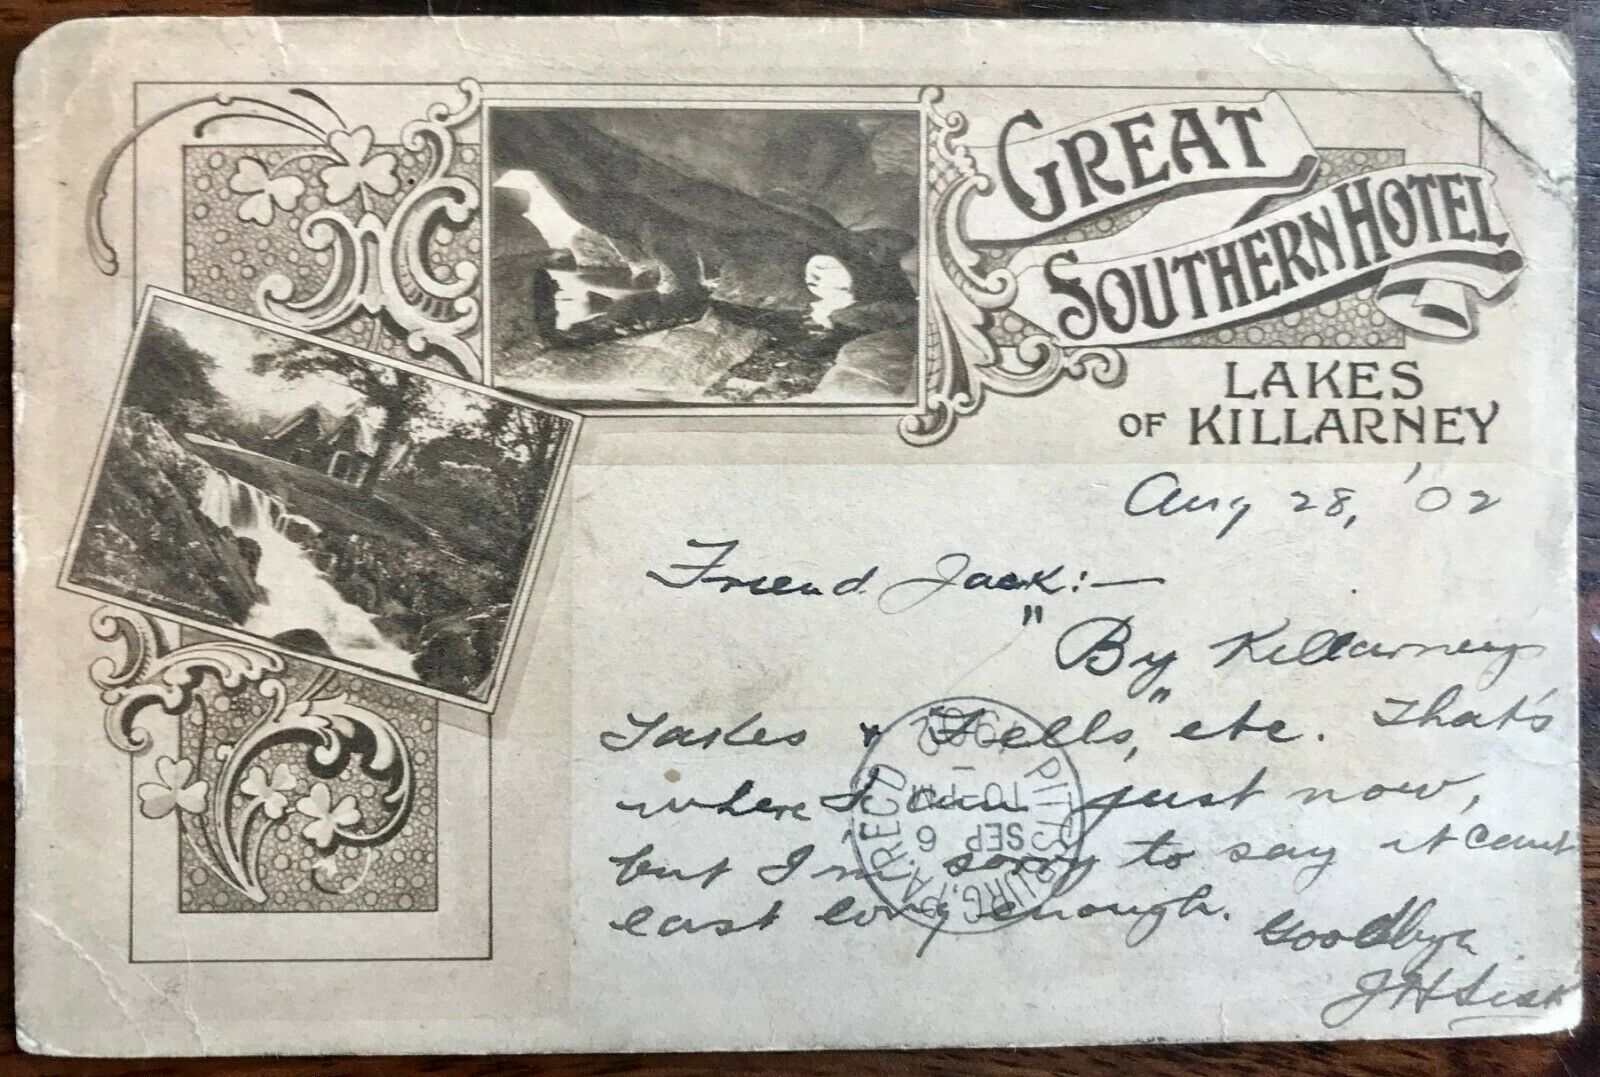 GREAT
SOUTHERN HOTEL
LAKES
OF KILLARNEY
Aug 28, '02
Friend Jack:—
"By Killarneys
Lakes & Fells," etc. That's
where I am just now,
but I'm sorry to say it cant
last long enough.
Goodbye
J H Sisk
PITTSBURG, PA. REC'D
SEP 6
10 - PM
1902